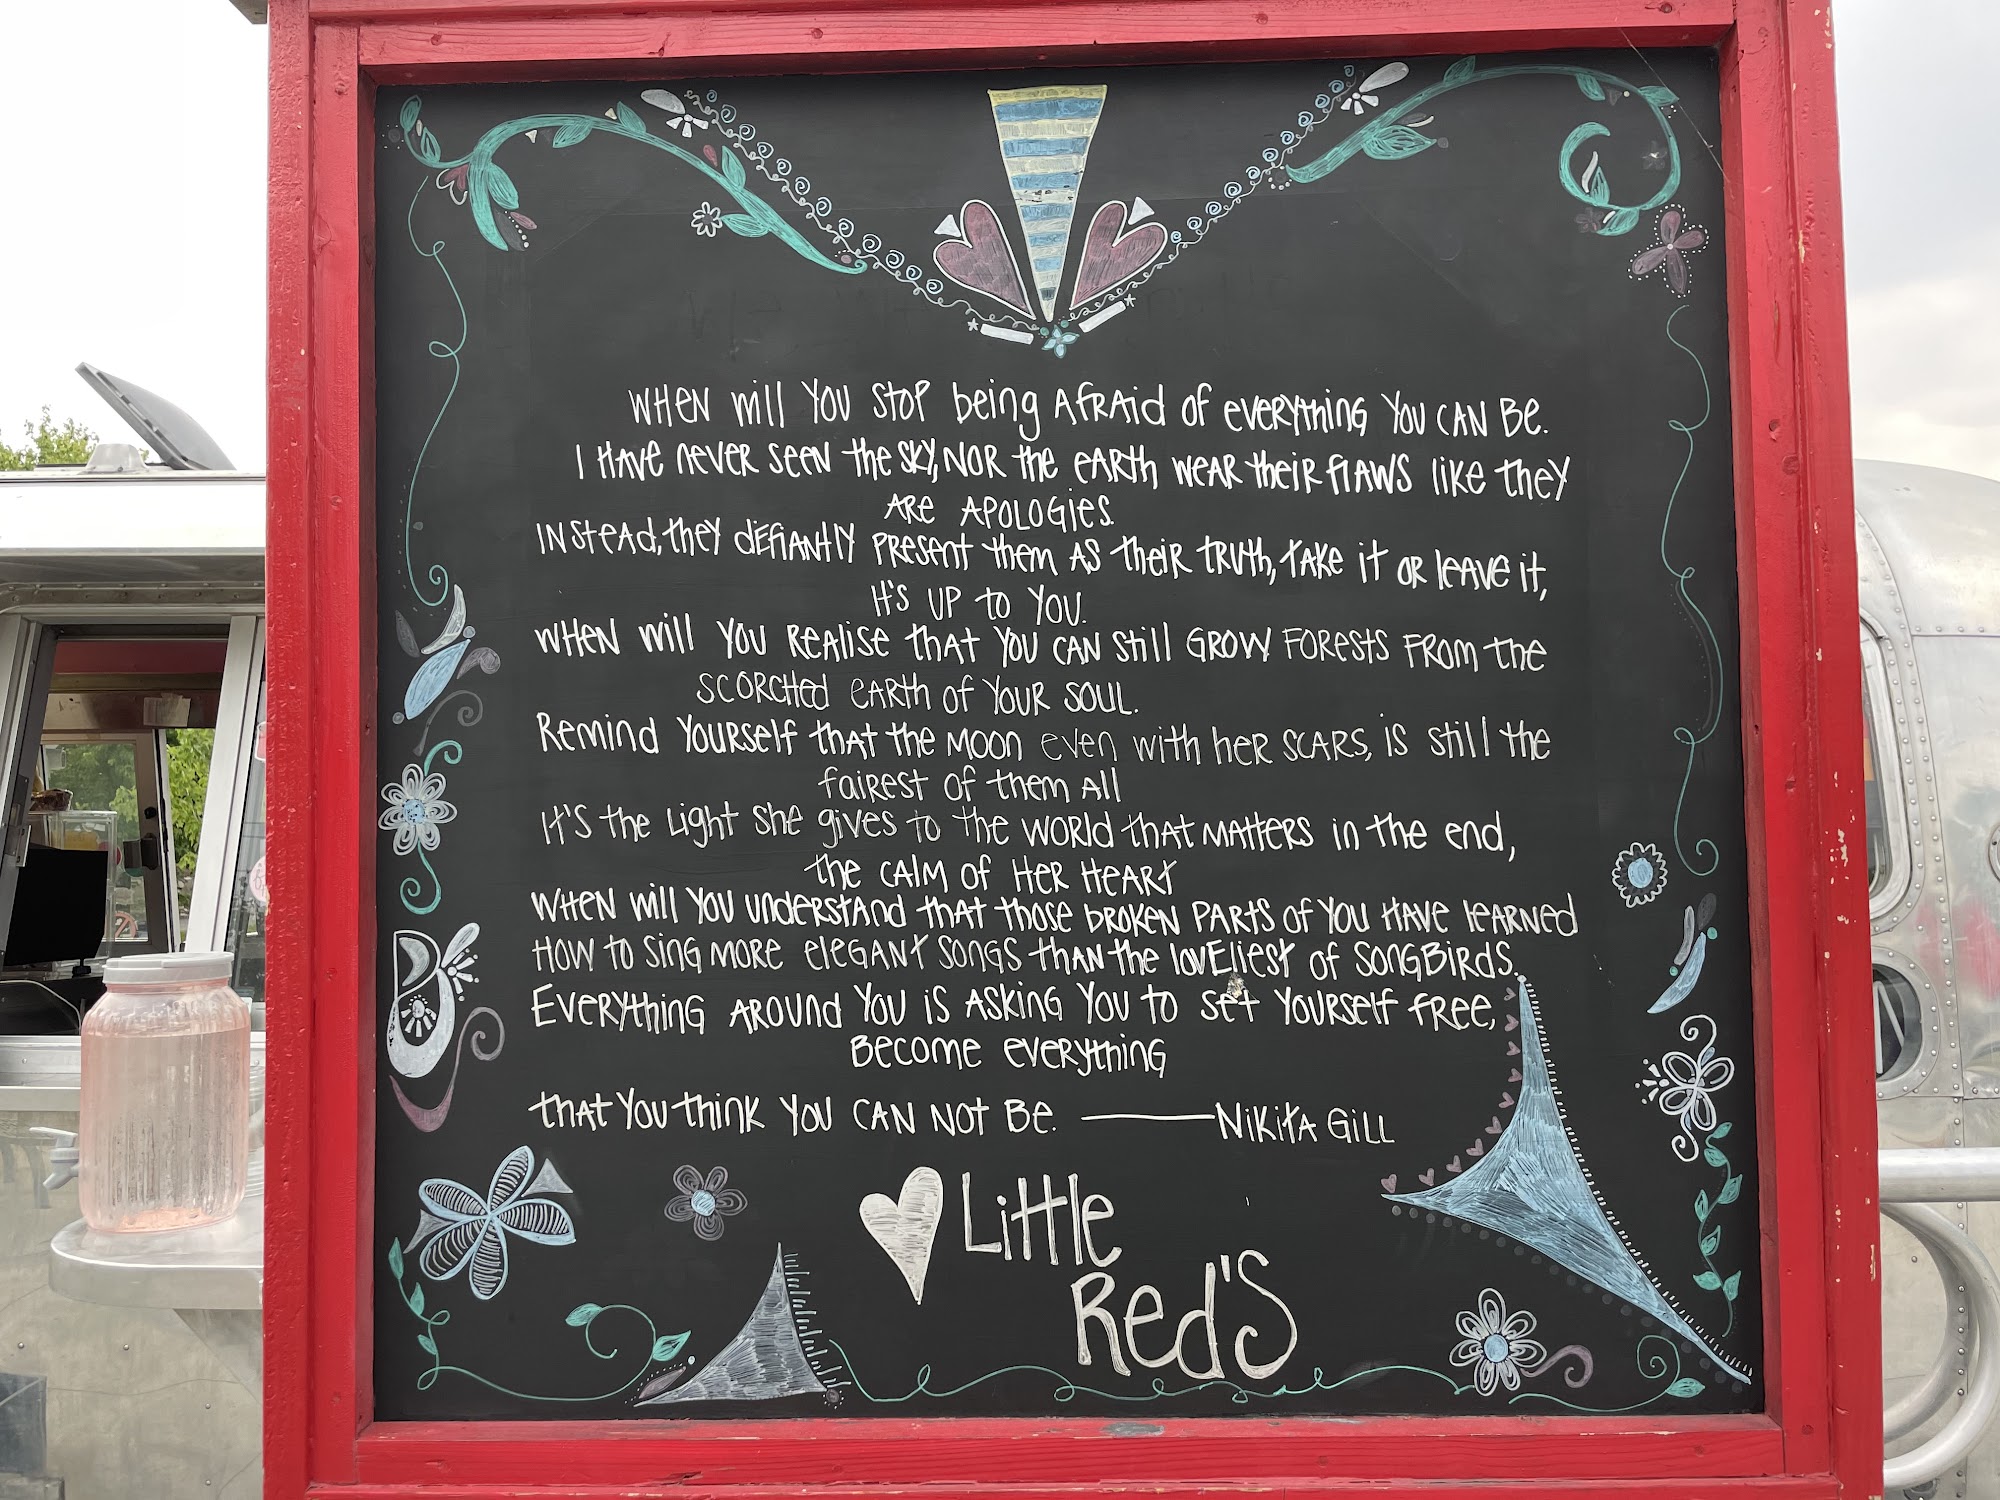 WHEN will YOU STOP being AFRAID OF EVERYTHING YOU CAN BE.
I HAVE NEVER SEEN the SKY, NOR the EARTH WEAR their FLAWS like they
ARE APOLOGIES.
INSTEAD, they DEFIANTLY PRESENT them AS their TRUTH, TAKE it OR LEAVE it,
It's UP to YOU.
WHEN will YOU REALISE that YOU CAN still GROW FORESTS FROM the
SCORCHED EARTH OF YOUR SOUL.
Remind YOURSELF that the MOON even with her SCARS, is still the
fairest of them All
It's the Light she gives to the WORLD that MATTERS in the end,
the CALM OF HER HEART
WHEN will YOU understand that those broken PARTS OF YOU HAVE learned
HOW to SING MORE elegant SONGS than the loveliest of SONGBIRDS.
EVERYTHING AROUND YOU is ASKING YOU to set YOURSELF FREE,
BECOME EVERYTHING
that YOU think YOU CAN NOT BE. ——— NIKITA GILL
Little
Red's